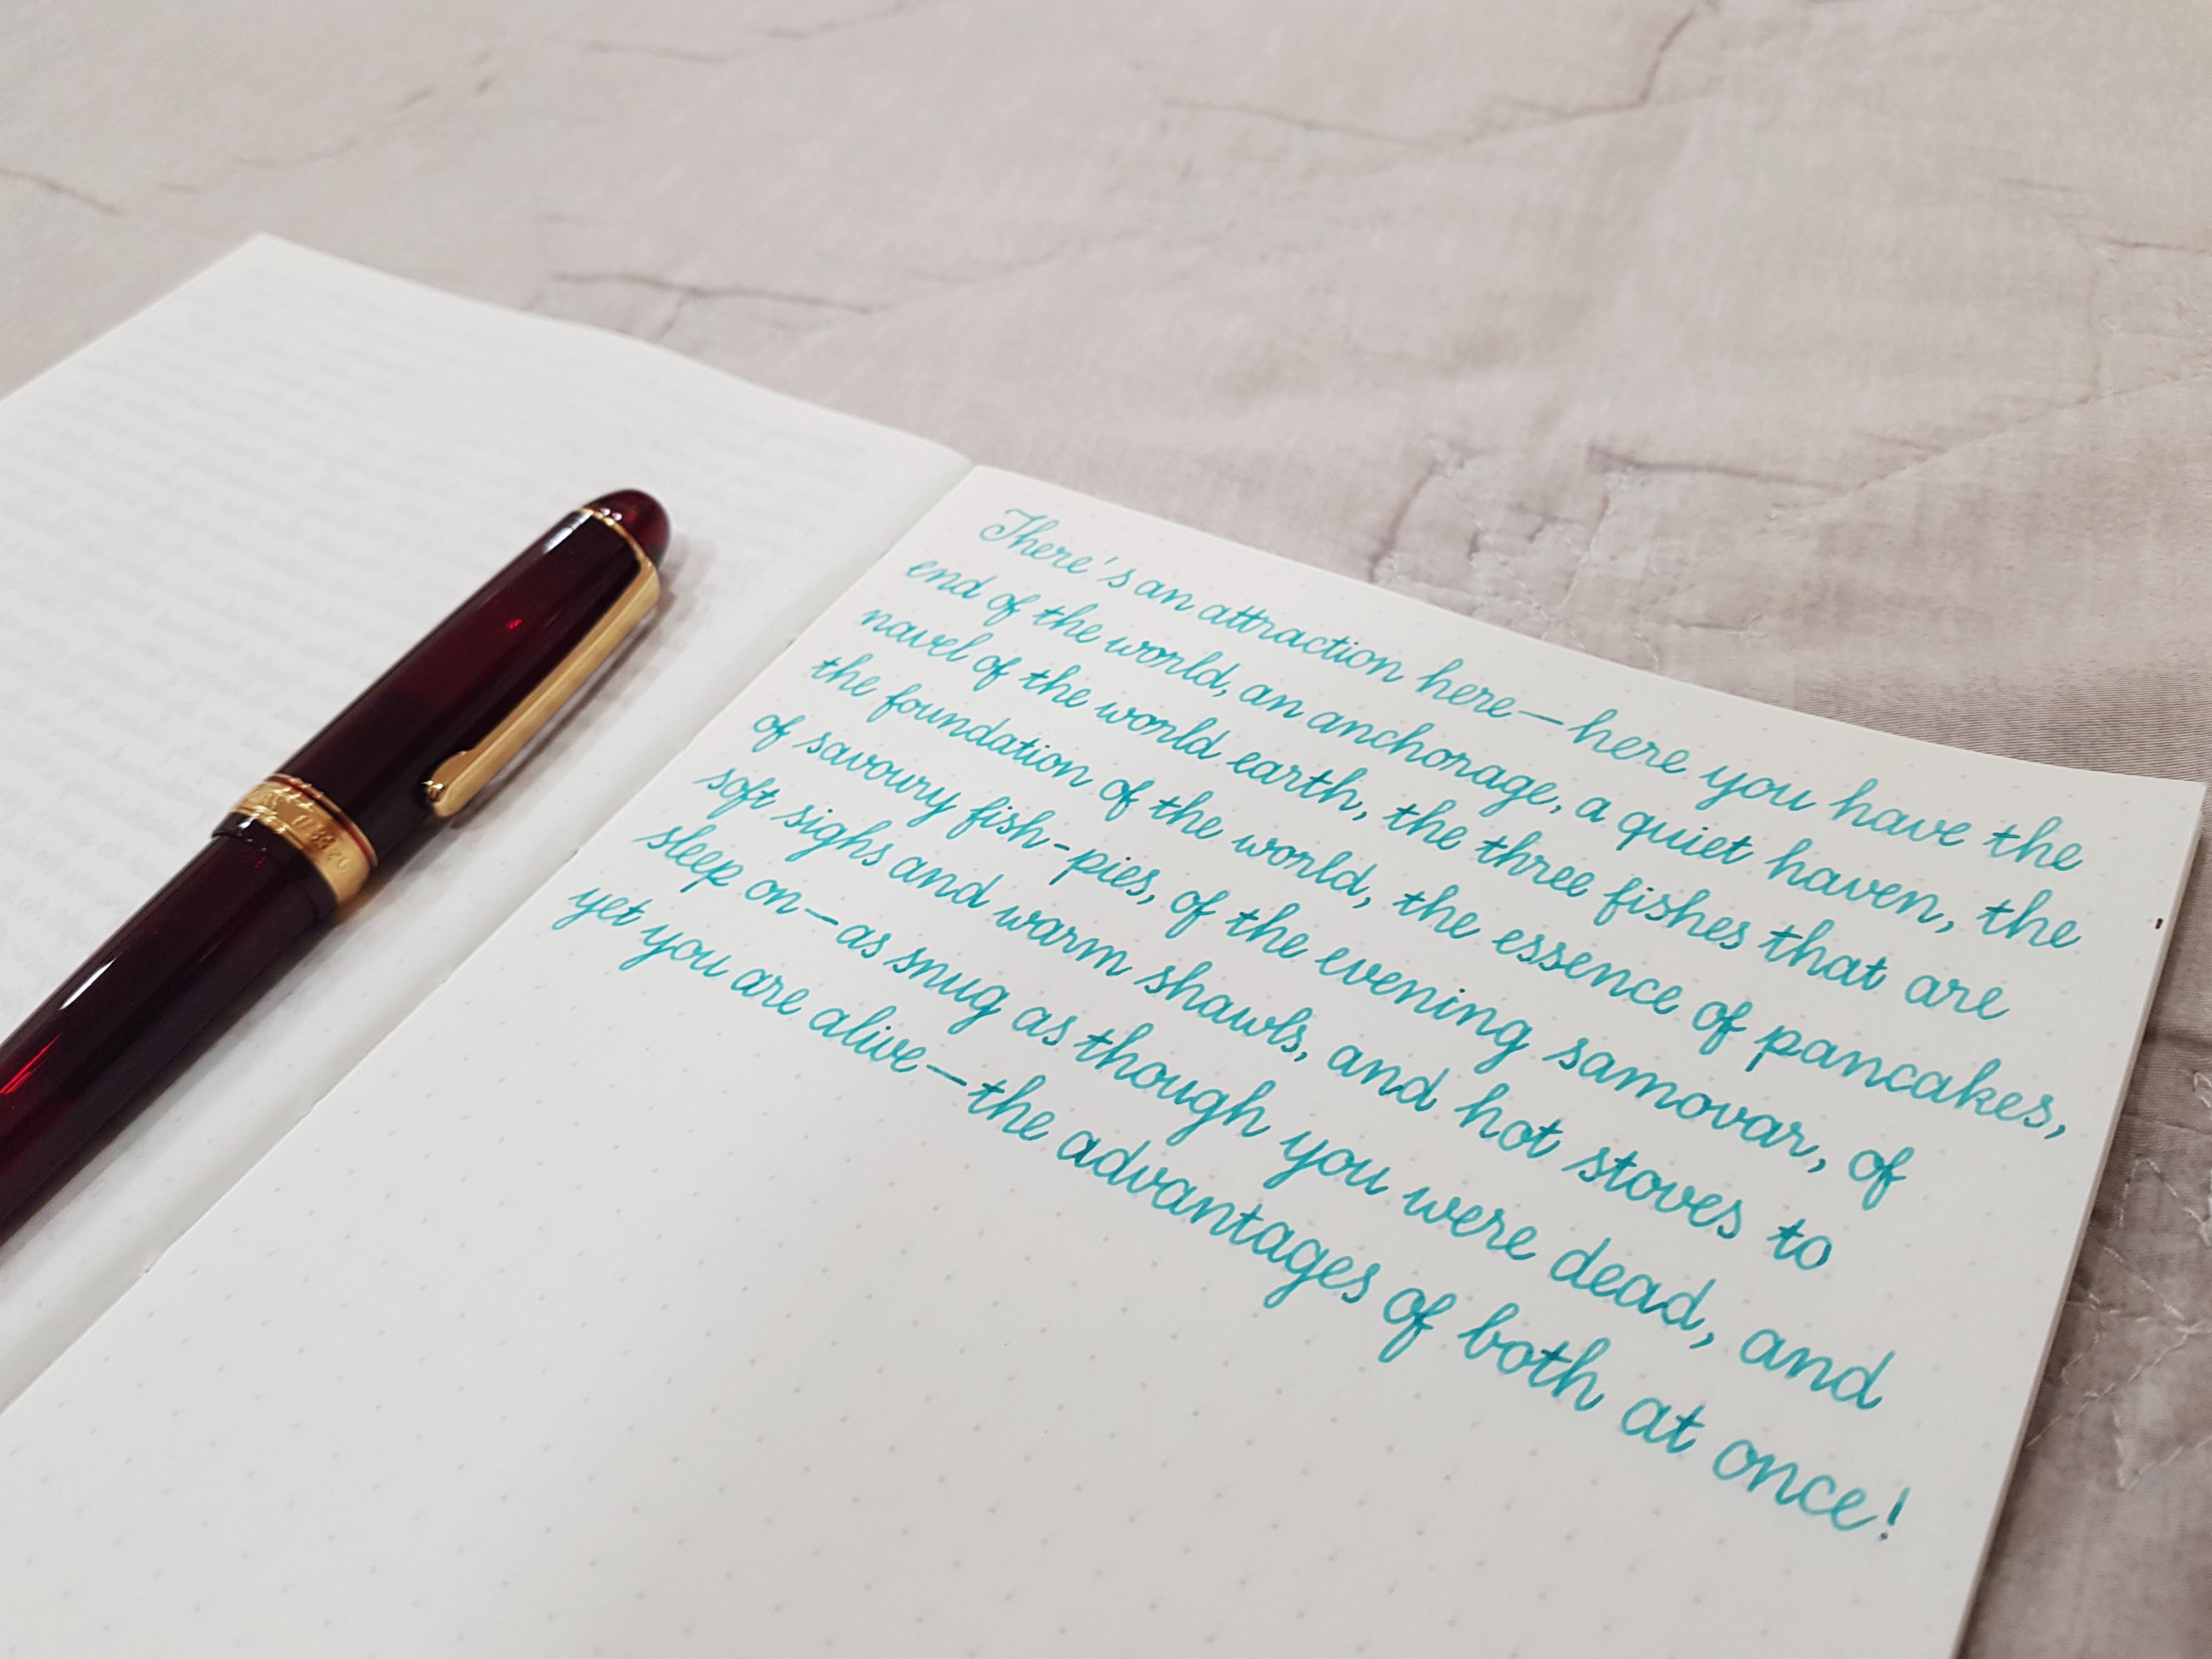 There's an attraction here—here you have the
end of the world, an anchorage, a quiet haven, the
navel of the world earth, the three fishes that are
the foundation of the world, the essence of pancakes,
of savoury fish-pies, of the evening samovar, of
soft sighs and warm shawls, and hot stoves to
sleep on—as snug as though you were dead, and
yet you are alive—the advantages of both at once!